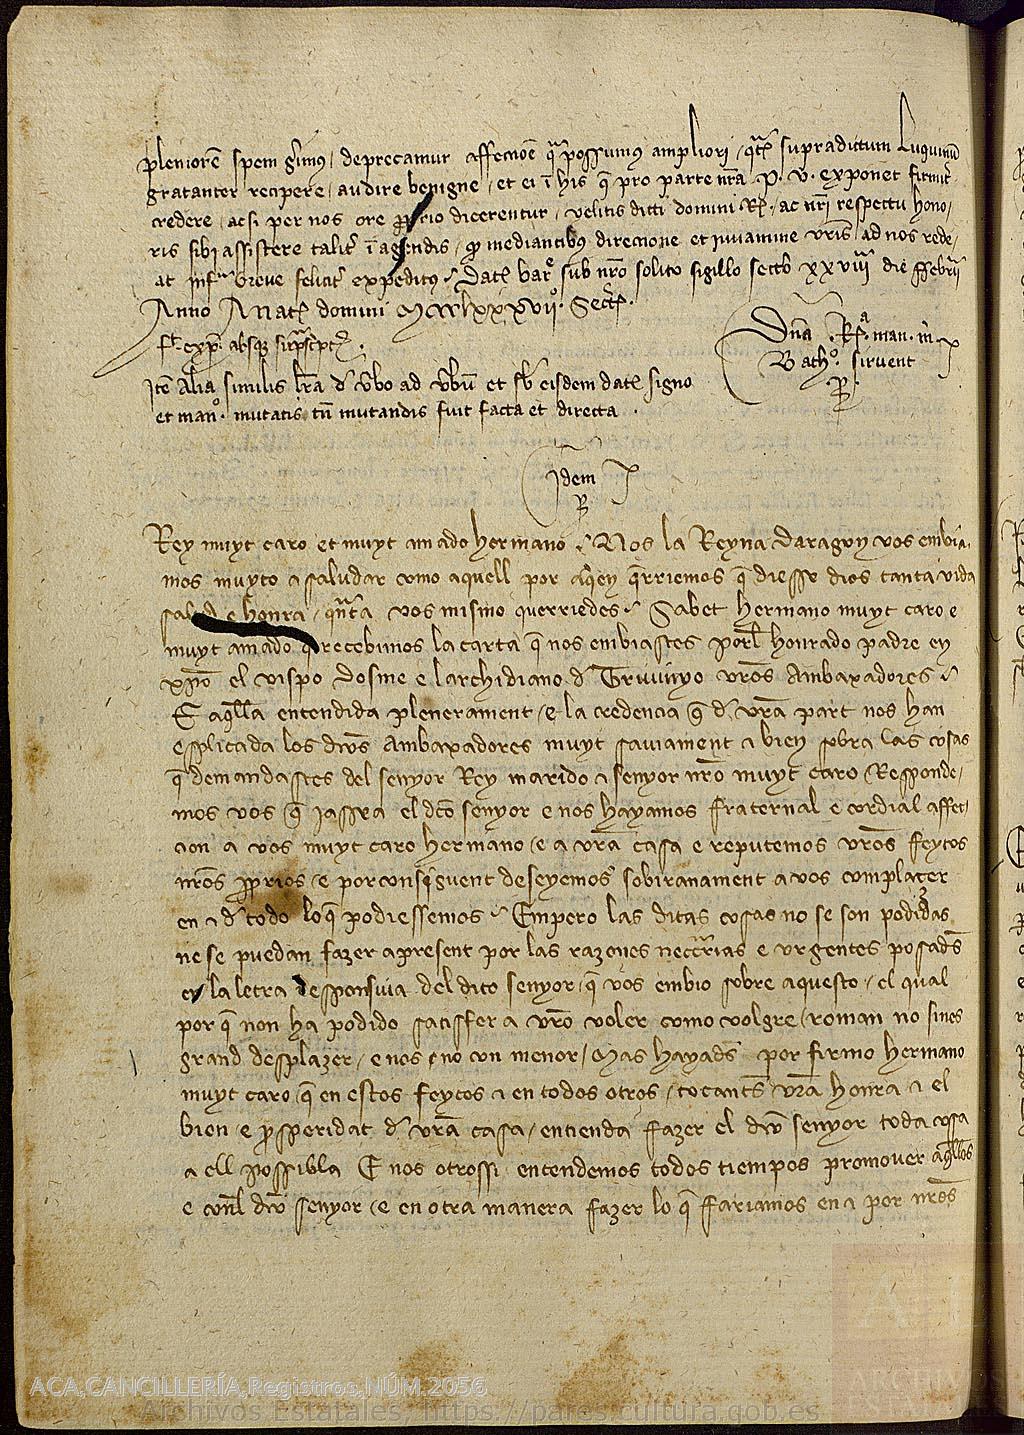 pleniorem spem gerimus, deprecamur affeccione qua possumus ampliori, quatenus supradictum Luguinum
gratanter recipere, audire benigne, et ei in his que pro parte nostra P. V. exponet firmiter
credere, acsi per nos ore proprio dicerentur, velitis dicti domini R. ac nostri respectu hono-
ris sibi assistere taliter in agendis, quod mediantibus direccione et iuvamine vestris ad nos rede-
at infra breve feliciter expeditus. Dat. Barchinone sub nostro solito sigillo secreto XXVIII die ffebruarii
Anno A Nat. domini MCCCLXXXVII. Secret.
Domina Ra. man. m.
Bartho. sirvent
P.
Item Alia similis littera de verbo ad verbum et sub eisdem dat. signo
et man. mutatis tamen mutandis fuit facta et directa.
Idem
P.
Rey muyt caro et muyt amado hermano. Nos la Reyna Daragon vos embia-
mos muyto a saludar como aquell por a qui querriemos que diesse dios tanta vida
salud e honra, quanta vos mismo querriedes. Sabet hermano muyt caro e
muyt amado que recebimos la carta que nos embiastes por el honrado padre en
xpo el vispo Dosme e larchidiano de Truvinyo vuestros Ambaxadores.
E aquella entendida plenerament, e la credencia que de vuestra part nos han
esplicada los ditos Ambaxadores muyt saviament e bien sobra las cosas
que demandastes del senyor Rey marido e senyor nuestro muyt caro Responde-
mos vos que jassea el dito senyor e nos hayamos fraternal e cordial affec-
cion a vos muyt caro hermano, e a vuestra casa e reputemos vuestros feytos
nuestros proprios, e por consiguent deseyemos sobiranament a vos complacer
en e de todo lo que podiessemos. Empero las ditas cosas no se son podidas
ne se puedan fazer a present por las razones necessarias e urgentes posades
en la letra responsiva del dito senyor, que vos embio sobre aquesto, el qual
por que non ha podido satisffer a vuestro voler como volgre, roman no sines
grand desplazer, e nos no con menor, Mas hayades por firmo hermano
muyt caro, que en estos feytos e en todos otros, tocantes vuestra honra e el
bien e prosperidat de vuestra casa, entienda fazer el dito senyor toda cosa
a ell possibla E nos otrossi entendemos todos tiempos promover aquellos
e con el dito senyor, e en otra manera fazer lo que fariamos en e por nuestros
ACA,CANCILLERÍA,Registros,NÚM.2056
Archivos Estatales, https://pares.cultura.gob.es